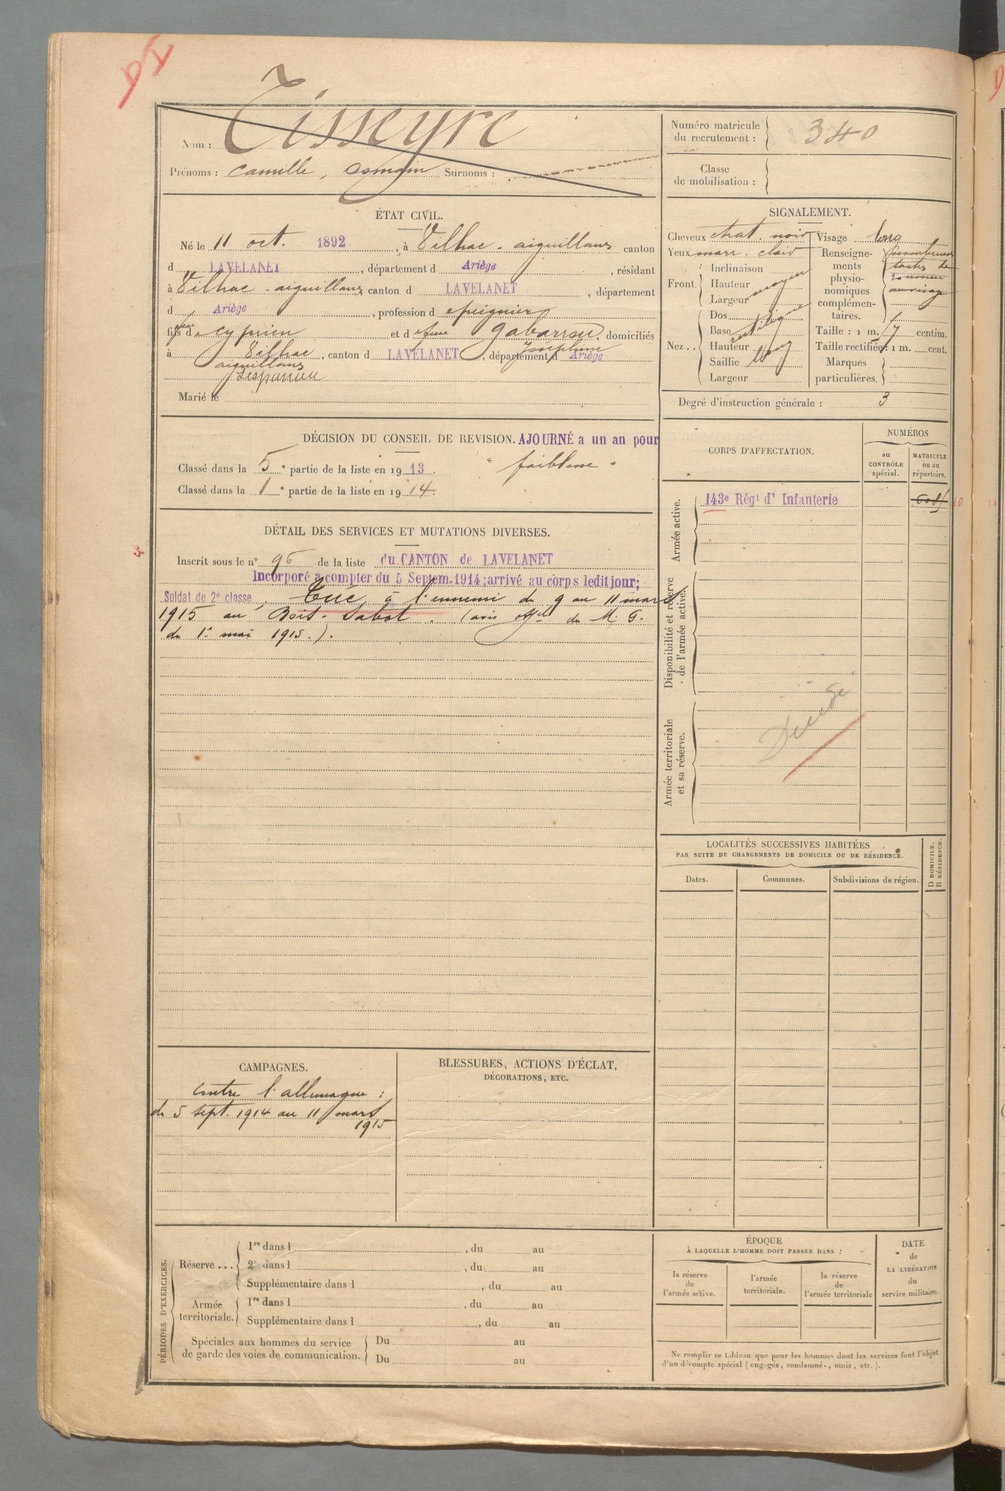 Nom : Tisseyre
Prénoms : Camille, Surnoms :
Numéro matricule du recrutement : 340
Classe de mobilisation :
ÉTAT CIVIL.
Né le 11 oct. 1892, à Vilhac-aiguillans canton
d LAVELANET, département d Ariège, résidant
à Vilhac-aiguillans canton d LAVELANET, département
d Ariège, profession d peigneur
fils d e Cyprien et d e feue Gabarrou Joséphine domiciliés
à Vilhac aiguillans, canton d LAVELANET, département d Ariège
Marié le
SIGNALEMENT.
Cheveux chat. noir
Yeux marr. clair
Front
Inclinaison
Hauteur moyen
Largeur
Nez
Dos
Base
Hauteur
Saillie long
Largeur
Visage long
Renseignements physionomiques complémentaires.
Taille : 1 m. centim.
Taille rectifiée : 1 m. cent.
Marques particulières.
Degré d'instruction générale : 3
DÉCISION DU CONSEIL DE REVISION. AJOURNÉ a un an pour
Classé dans la 5e partie de la liste en 1913. "faiblesse"
Classé dans la 1e partie de la liste en 1914.
CORPS D'AFFECTATION.
NUMÉROS
au CONTRÔLE spécial.
MATRICULE ou au répertoire.
Armée active.
143e Régt d' Infanterie
Disponibilité et réserve de l'armée active.
Armée territoriale et sa réserve.
Décédé
DÉTAIL DES SERVICES ET MUTATIONS DIVERSES.
Inscrit sous le n° 96 de la liste du CANTON de LAVELANET
Incorporé à compter du 5 Septem. 1914; arrivé au corps ledit jour;
Soldat de 2e classe, Tué à l'ennemi du 9 au 11 mars
1915 au Bois-Sabot. (avis offel du M. G.
du 1er mai 1915.).
LOCALITÉS SUCCESSIVES HABITÉES
PAR SUITE DE CHANGEMENTS DE DOMICILE OU DE RÉSIDENCE.
Dates.
Communes.
Subdivisions de région.
D DOMICILE.
R RÉSIDENCE.
CAMPAGNES.
Contre l'allemagne :
du 5 sept. 1914 au 11 mars
1915
BLESSURES, ACTIONS D'ÉCLAT,
DÉCORATIONS, ETC.
PÉRIODES D'EXERCICES.
Réserve...
1re dans l , du au
2e dans l , du au
Supplémentaire dans l , du au
Armée territoriale.
1re dans l , du au
Supplémentaire dans l , du au
Spéciales aux hommes du service de garde des voies de communication.
Du au
Du au
ÉPOQUE
À LAQUELLE L'HOMME DOIT PASSER DANS :
la réserve de l'armée active.
l'armée territoriale.
la réserve de l'armée territoriale
DATE de LA LIBÉRATION du service militaire.
Ne remplir ce tableau que pour les hommes dont les services font l'objet
d'un décompte spécial (engagés, condamnés, omis, etc.).